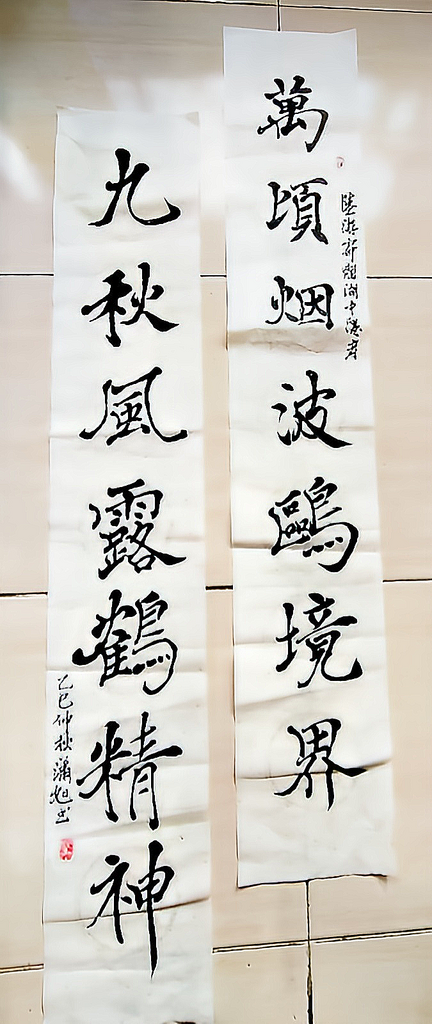 萬頃烟波鷗境界
陸游湖中隱者
九秋風露鶴精神
乙巳仲秋瀟旭书